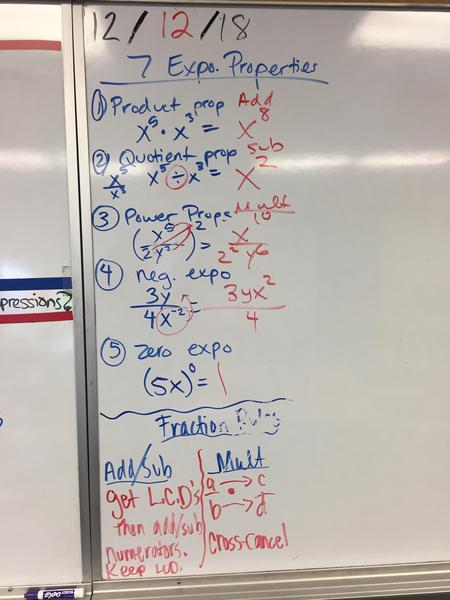 12/12/18
7 Expo. Properties
① Product prop Add
x⁵ · x³ = x⁸
② Quotient prop Sub
x⁵/x³ x⁵ ÷ x³ = x²
③ Power Props Mult
(x⁵/2y³)² = x¹⁰/2²y⁶
④ neg. expo
3y/4x⁻² = 3yx²/4
⑤ zero expo
(5x)⁰ = 1
Fraction Rules
Add/Sub
get L.C.D's
then add/sub
numerators.
Keep LCD.
Mult
a → c
b → d
Cross-Cancel
pressions?
EXPO